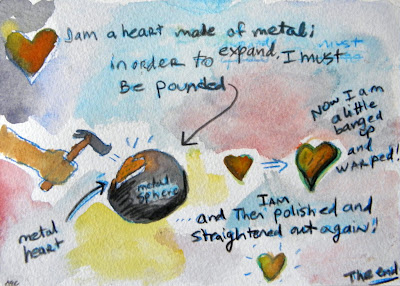 I am a heart made of metal;
in order to expand, I must
Be pounded
Now I am
a little
banged
up
and
warped!
metal
sphere
metal
heart
I AM
... and Then polished and
straightened out again!!
The end